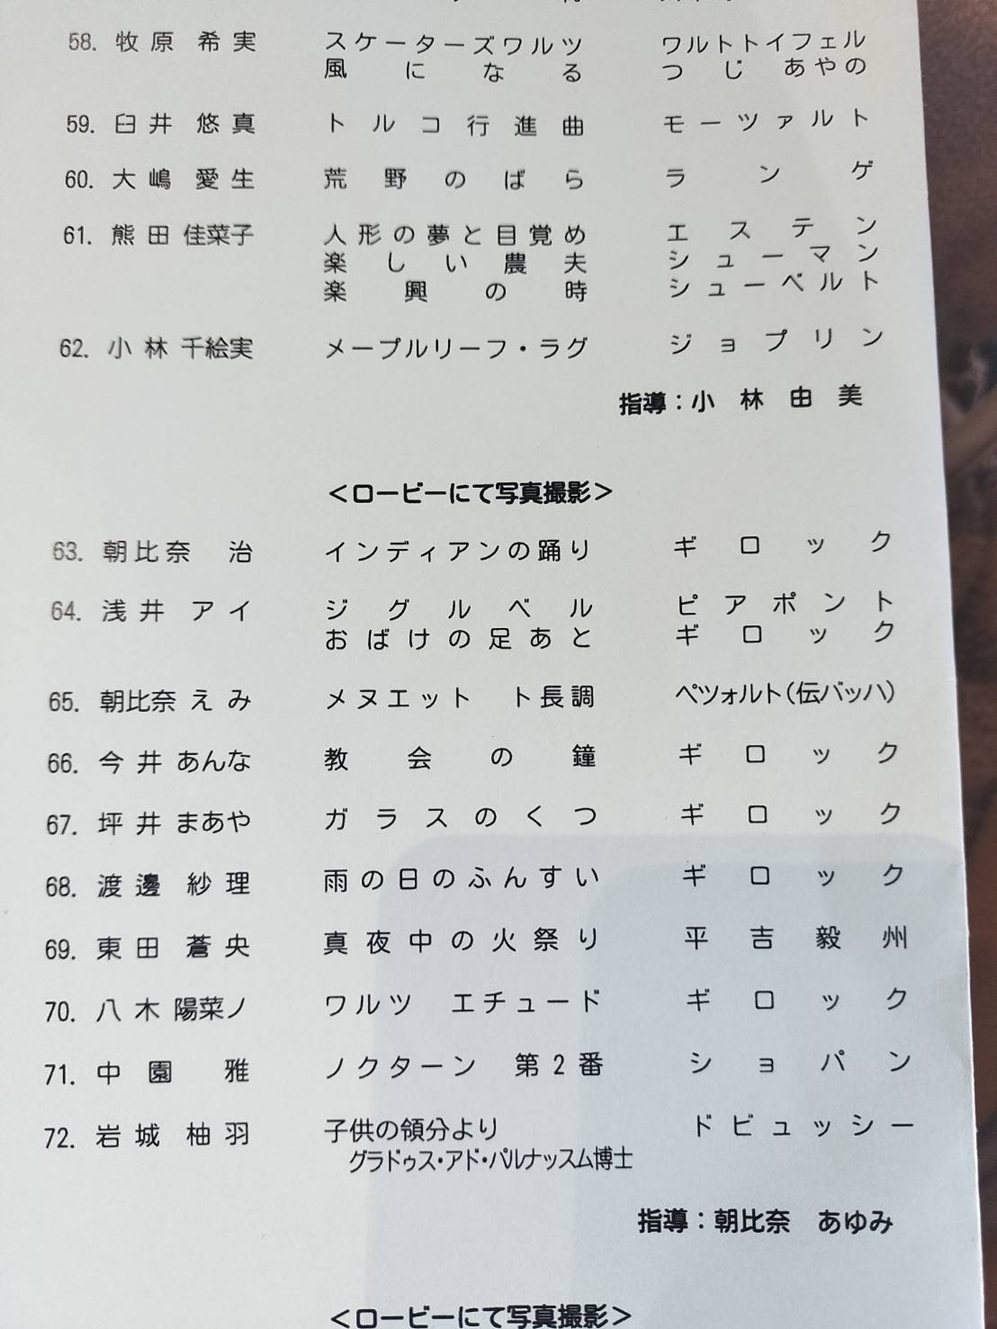 58. 牧原 希実 スケーターズワルツ ワルトトイフェル
風になる つじあやの
59. 臼井 悠真 トルコ行進曲 モーツァルト
60. 大嶋 愛生 荒野のばら ランゲ
61. 熊田 佳菜子 人形の夢と目覚め エステン
楽しい農夫 シューマン
楽興の時 シューベルト
62. 小林 千絵実 メープルリーフ・ラグ ジョプリン
指導:小林由美
<ロビーにて写真撮影>
63. 朝比奈 治 インディアンの踊り ギロック
64. 浅井 アイ ジグルベル ピアポント
おばけの足あと ギロック
65. 朝比奈 えみ メヌエット ト長調 ペツォルト(伝バッハ)
66. 今井 あんな 教会の鐘 ギロック
67. 坪井 まあや ガラスのくつ ギロック
68. 渡邊 紗理 雨の日のふんすい ギロック
69. 東田 蒼央 真夜中の火祭り 平吉毅州
70. 八木 陽菜ノ ワルツ エチュード ギロック
71. 中園 雅 ノクターン 第2番 ショパン
72. 岩城 柚羽 子供の領分より ドビュッシー
グラドゥス・アド・パルナッスム博士
指導:朝比奈 あゆみ
<ロビーにて写真撮影>